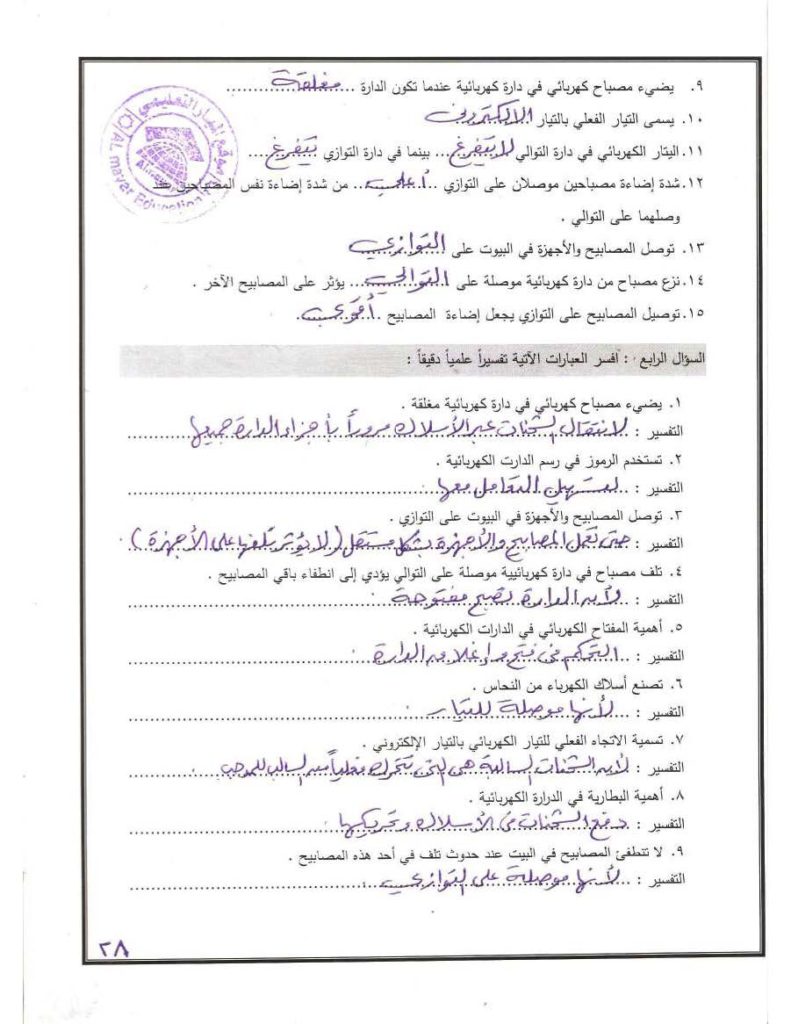 ٩. يضيء مصباح كهربائي في دارة كهربائية عندما تكون الدارة ...مغلقة...
١٠. يسمى التيار الفعلي بالتيار الإلكتروني
١١. اليتار الكهربائي في دارة التوالي لا يتفرع... بينما في دارة التوازي يتفرع....
١٢. شدة إضاءة مصباحين موصلان على التوازي ..أعلى... من شدة إضاءة نفس المصباحين عند
وصلهما على التوالي .
١٣. توصل المصابيح والأجهزة في البيوت على التوازي
١٤. نزع مصباح من دارة كهربائية موصلة على التوالي... يؤثر على المصابيح الآخر .
١٥. توصيل المصابيح على التوازي يجعل إضاءة المصابيح .أقوى.
السؤال الرابع : أفسر العبارات الآتية تفسيراً علمياً دقيقاً :
١. يضيء مصباح كهربائي في دارة كهربائية مغلقة .
التفسير : لانتقال الشحنات عبر الأسلاك مروراً بأجزاء الدارة جميعها
٢. تستخدم الرموز في رسم الدارت الكهربائية .
التفسير : لتسهيل التعامل معها
٣. توصل المصابيح والأجهزة في البيوت على التوازي .
التفسير : حتى تعمل المصابيح والأجهزة بشكل مستقل (لا يؤثر تلفها على الأجهزة)
٤. تلف مصباح في دارة كهربائيية موصلة على التوالي يؤدي إلى انطفاء باقي المصابيح .
التفسير : لأن الدارة تصبح مفتوحة
٥. أهمية المفتاح الكهربائي في الدارات الكهربائية .
التفسير : التحكم في فتح وإغلاق الدارة
٦. تصنع أسلاك الكهرباء من النحاس .
التفسير : لأنها موصلة للتيار
٧. تسمية الاتجاه الفعلي للتيار الكهربائي بالتيار الإلكتروني .
التفسير : لأن الشحنات السالبة هي التي تتحرك فعلياً من السالب للموجب
٨. أهمية البطارية في الدرارة الكهربائية .
التفسير : دفع الشحنات في الأسلاك وتحريكها
٩. لا تنطفئ المصابيح في البيت عند حدوث تلف في أحد هذه المصابيح .
التفسير : لأنها موصلة على التوازي
٢٨